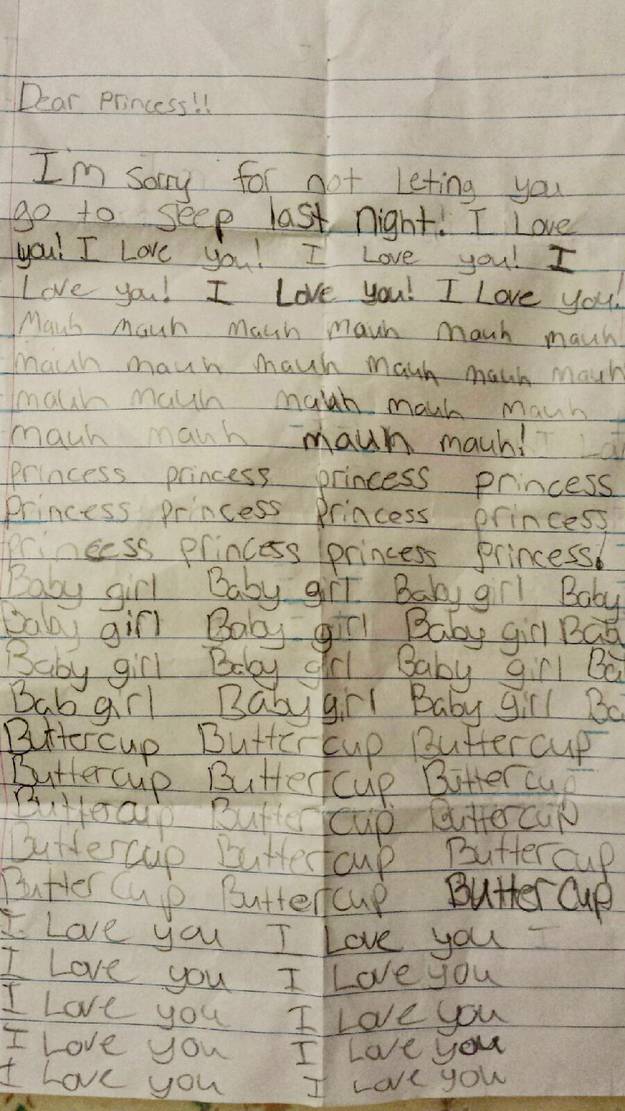 Dear Princess!!
I'm sorry for not leting you
go to sleep last night! I Love
you! I Love you! I Love you! I
Love you! I Love you! I Love you!
Mauh mauh mauh mauh mauh mauh
mauh mauh mauh mauh mauh mauh
mauh mauh mauh mauh mauh
mauh mauh mauh mauh!
princess princess princess princess
Princess princess princess princess
princess princess princess princess!
Baby girl Baby girl Baby girl Baby
Baby girl Baby girl Baby girl Bab
Baby girl Baby girl Baby girl Ba
Bab girl Baby girl Baby girl Ba
Buttercup Buttercup Buttercup
Buttercup Buttercup Buttercup
Buttercup Buttercup Buttercup
Buttercup Buttercup Buttercup
Buttercup Buttercup Buttercup
I Love you I Love you I
I Love you I Love you
I Love you I Love you
I Love you I Love you
I Love you I Love you